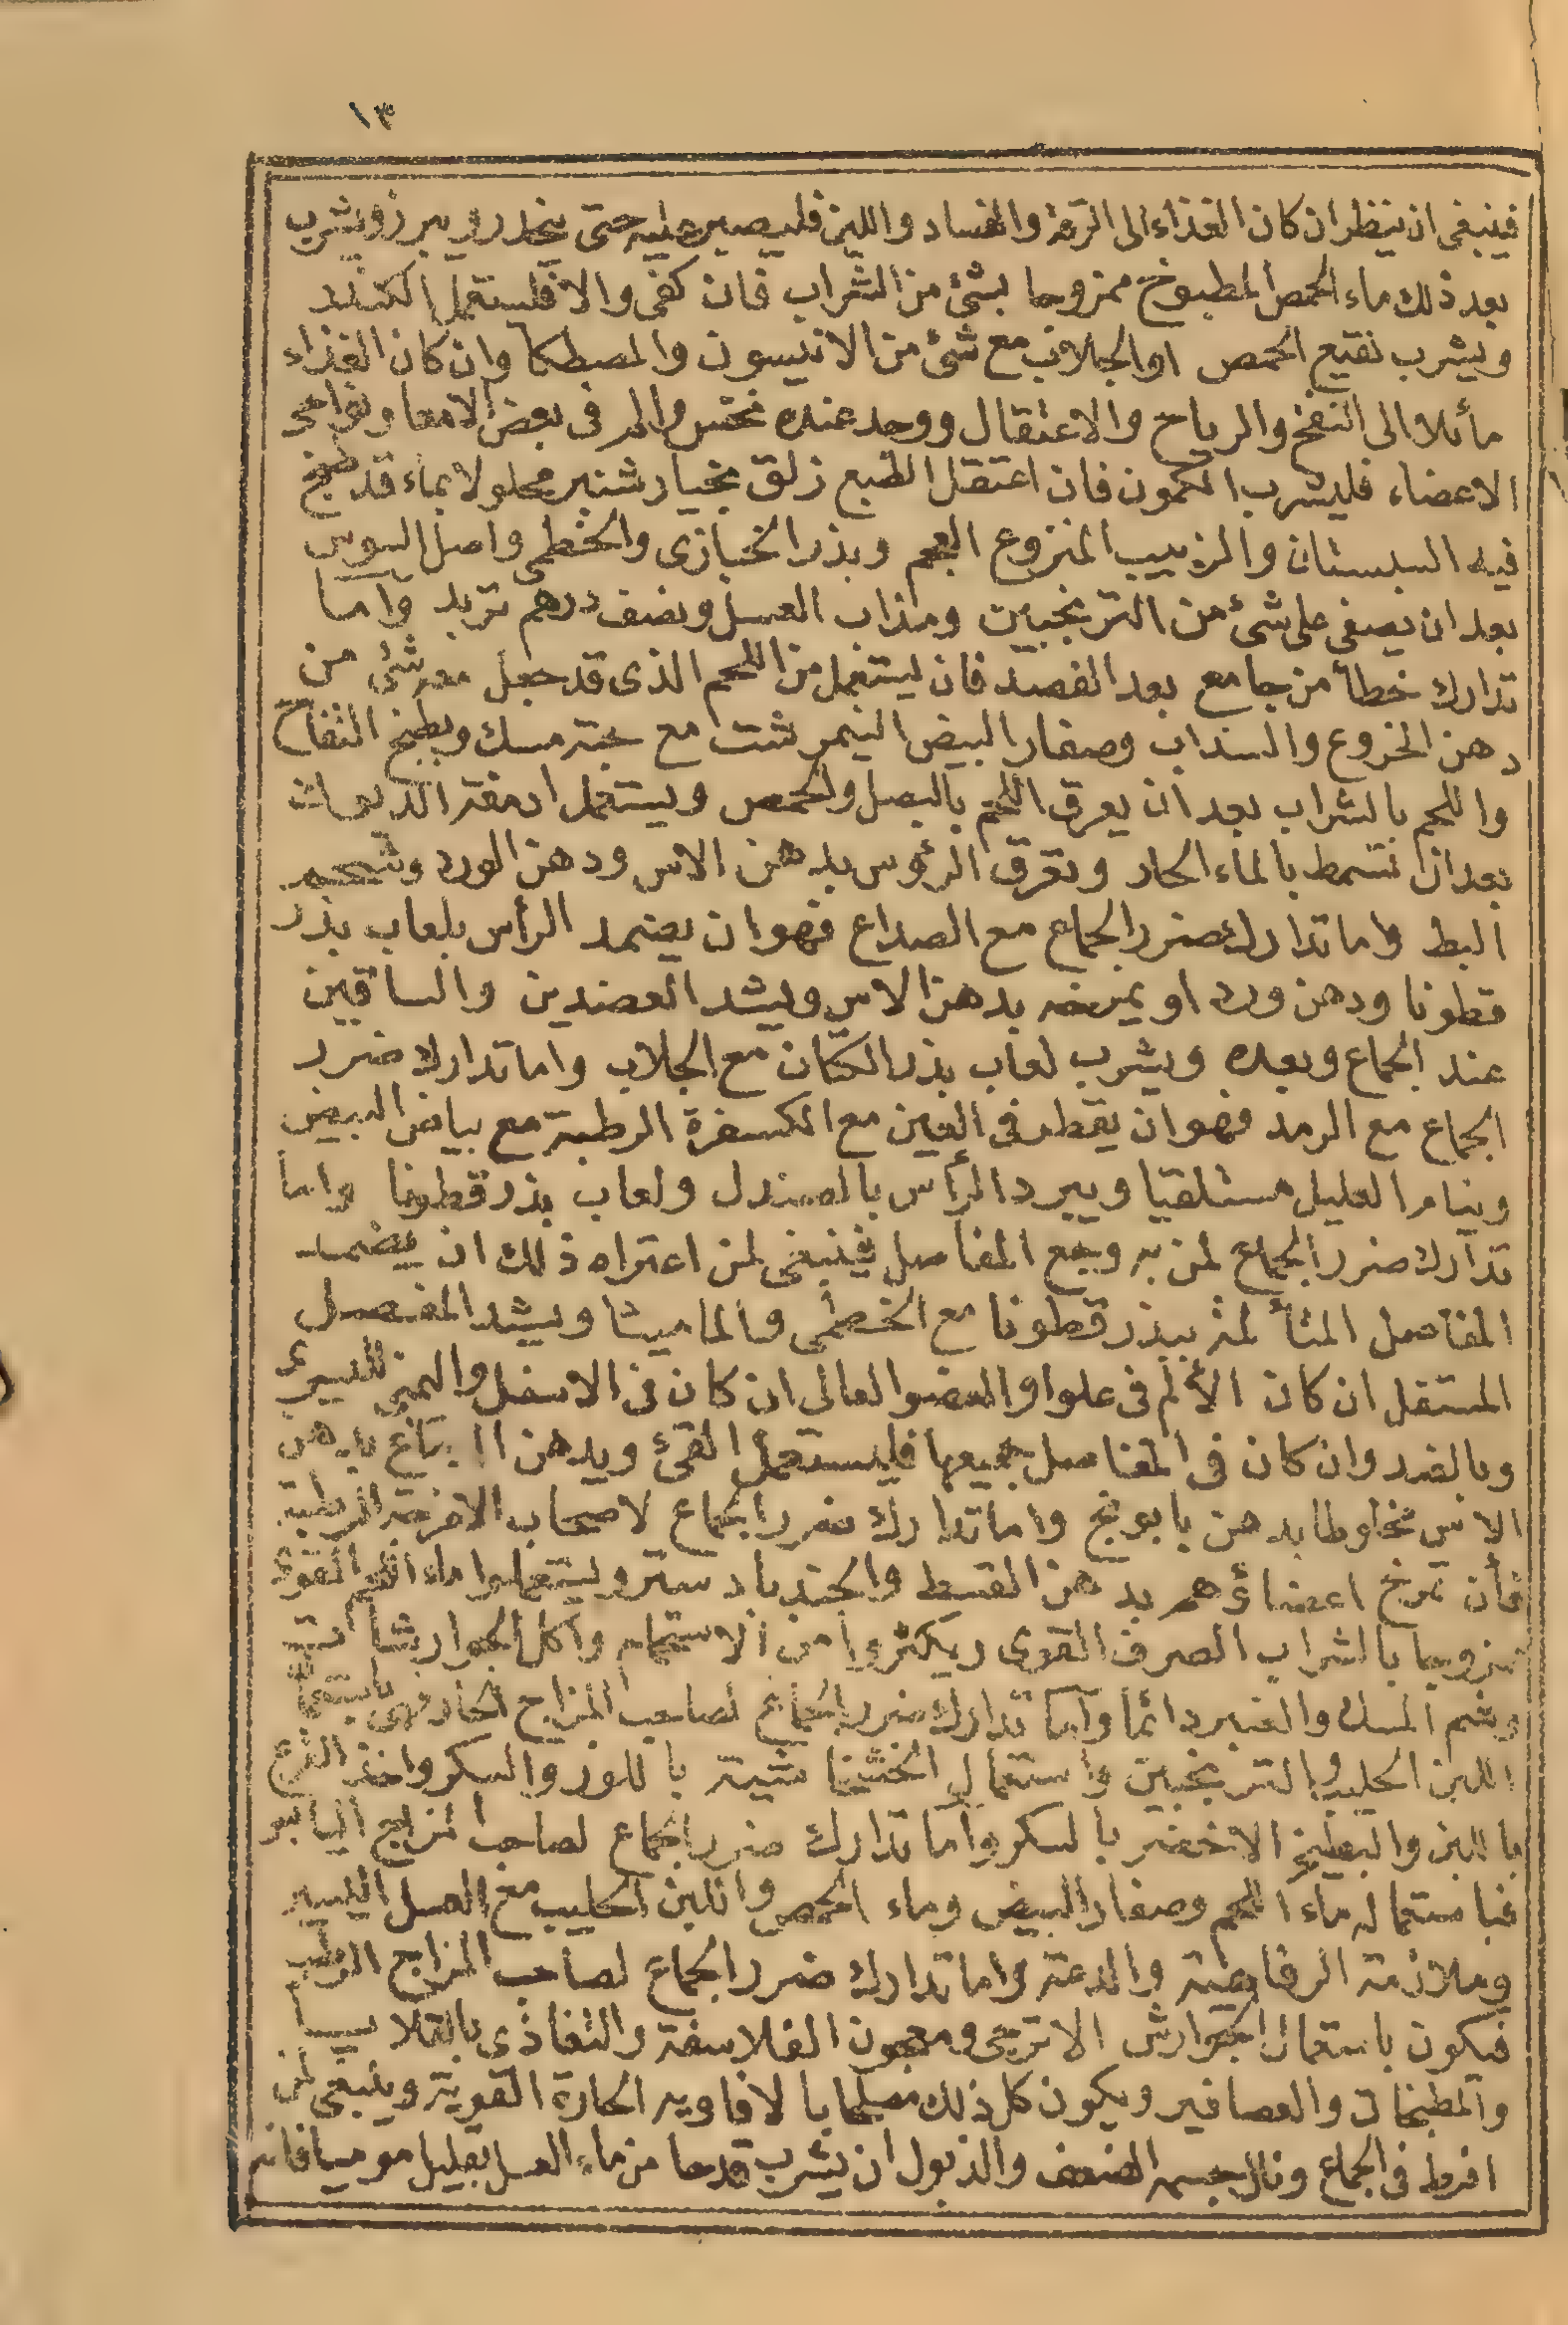 ١٣
فينبغى ان ينظر ان كان الغذاء الى الرقة والفساد واللين فليصبر عليه حتى ينحدر ويبرز ويشرب
بعد ذلك ماء الحمص المطبوخ ممزوجا بشئ من الشراب فان كفى والا فليستعمل الكندر
ويشرب نقيع الحمص اوالجلاب مع شئ من الانيسون والمصطكا وان كان الغذاء
مائلا الى النفخ والرياح والاعتقال ووجد عنده نخس والم فى بعض الامعا ونواحى
الاعضاء فليشرب الكمون فان اعتقل الطبع زلق بخيار شنبر محلولا بماء قد طبخ
فيه السبستان والزبيب المنزوع العجم وبذر الخبازى والخطمى واصل السوس
بعد ان يصفى على شئ من الترنجبين ومذاب العسل ونصف درهم تربد وأما
تدارك خطأ من جامع بعد الفصد فان يستعمل من اللحم الذى قد جعل معه شئ من
دهن الخروع والسذاب وصفار البيض النيمرشت مع حبة مسك ويطبخ التفاح
واللحم بالشراب بعد ان يعرق اللحم بالبصل والحمص ويستعمل ادمغة الديوك
بعد ان تسمط بالماء الحار وتعرق الرؤس بدهن الاس ودهن الورد وشحم
البط واما تدارك ضرر الجماع مع الصداع فهو ان يضمد الرأس بلعاب بذر
قطونا ودهن ورد او يمرخه بدهن الاس ويشد العضدين والساقين
عند الجماع وبعده ويشرب لعاب بذر الكتان مع الجلاب واما تدارك ضرر
الجماع مع الرمد فهو ان يقطر فى العين مع الكسفرة الرطبة مع بياض البيض
وينام العليل مستلقيا ويبرد الرأس بالصندل ولعاب بذر قطونا واما
تدارك ضرر الجماع لمن به وجع المفاصل فينبغى لمن اعتراه ذلك ان يضمد
المفاصل المتألمة ببذر قطونا مع الخطمى والماميثا ويشد المفصل
المستفل ان كان الألم فى علو او العضو العالى ان كان فى الاسفل واليمنى لليسرى
وبالضد وان كان فى المفاصل جميعها فليستعمل القئ ويدهن بدهن
الاس مخلوطا بدهن بابونج واما تدارك ضرر الجماع لاصحاب الامزجة الرطبة
فأن تمرخ اعضاؤهم بدهن القسط والجندبادستر ويستعملوا ماء اللحم القوى
ممزوجا بالشراب الصرف القوى ويكثروا من الاستحمام واكل الجوارشات
وشم المسك والعنبر دائما وأما تدارك ضرر الجماع لصاحب المزاج الحار فهى باستعمال
اللبن الحليب والترنجبين واستعمال الخشخاشية باللوز والسكر واخذ القرع
باللبن والبطيخ الاخضر بالسكر وأما تدارك ضرر الجماع لصاحب المزاج اليابس
فباستعماله ماء اللحم وصفار البيض وماء الحمص واللبن الحليب مع العسل اليسير
وملازمة الرفاهية والدعة واما تدارك ضرر الجماع لصاحب المزاج الرطب
فيكون باستعمال الجوارش الاترجى ومعجون الفلاسفة والتغاذى بالقلايا
والمطبخات والعصافير ويكون كل ذلك بالافاويه الحارة القوية وينبغى لمن
افرط فى الجماع ونال جسمه الضعف والذبول ان يشرب قدحا من ماء العسل بقليل موميا فانه